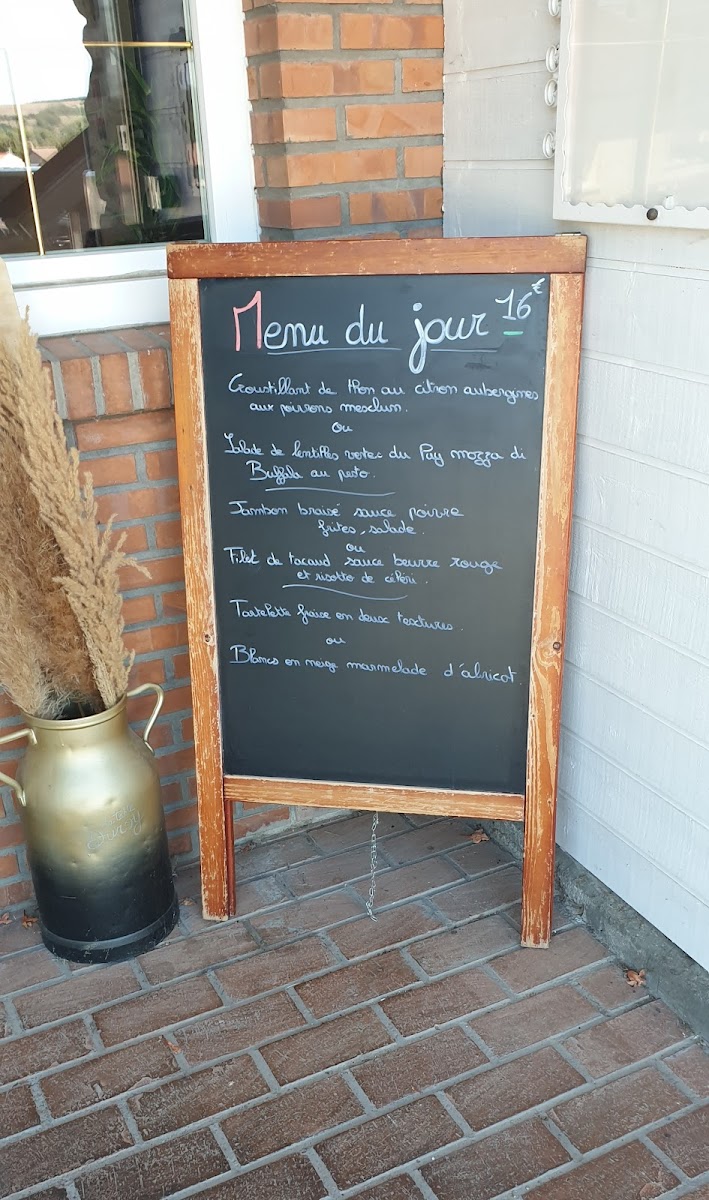 Menu du jour 16€
Croustillant de thon au citron aubergines
aux poivrons mesclun.
ou
Salade de lentilles vertes du Puy mozza di
Buffala au pesto.
Jambon braisé sauce poivre
frites, salade.
ou
Filet de tacaud sauce beurre rouge
et risotto de céleri.
Tartelette fraise en deux textures.
ou
Blancs en neige marmelade d'abricot.